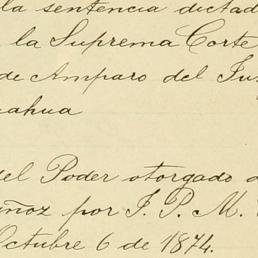 la sentencia dictad
la Suprema Corte
de Amparo del Ju
uahua
del Poder otorgado a
uñoz por J. P. M.
Octubre 6 de 1874.